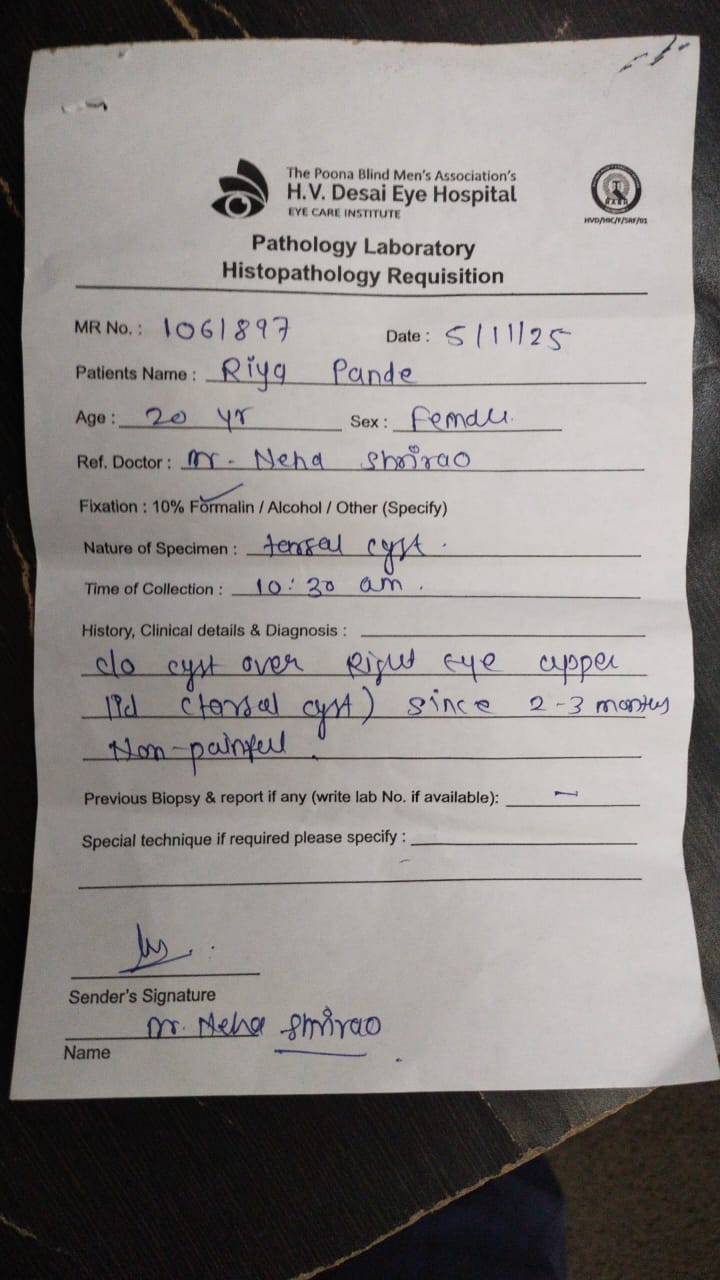 The Poona Blind Men's Association's
H.V. Desai Eye Hospital
EYE CARE INSTITUTE
HVD/HIC/F/SRF/01
Pathology Laboratory
Histopathology Requisition
MR No. : 1061897 Date : 5/11/25
Patients Name : Riya Pande
Age : 20 yr Sex : Female.
Ref. Doctor : Dr. Neha Shrirao
Fixation : 10% Formalin / Alcohol / Other (Specify)
Nature of Specimen : tarsal cyst.
Time of Collection : 10:30 am.
History, Clinical details & Diagnosis :
c/o cyst over Right eye upper
lid (tarsal cyst) since 2-3 months
Non-painful.
Previous Biopsy & report if any (write lab No. if available): -
Special technique if required please specify :
-
Sender's Signature
Dr. Neha Shrirao
Name